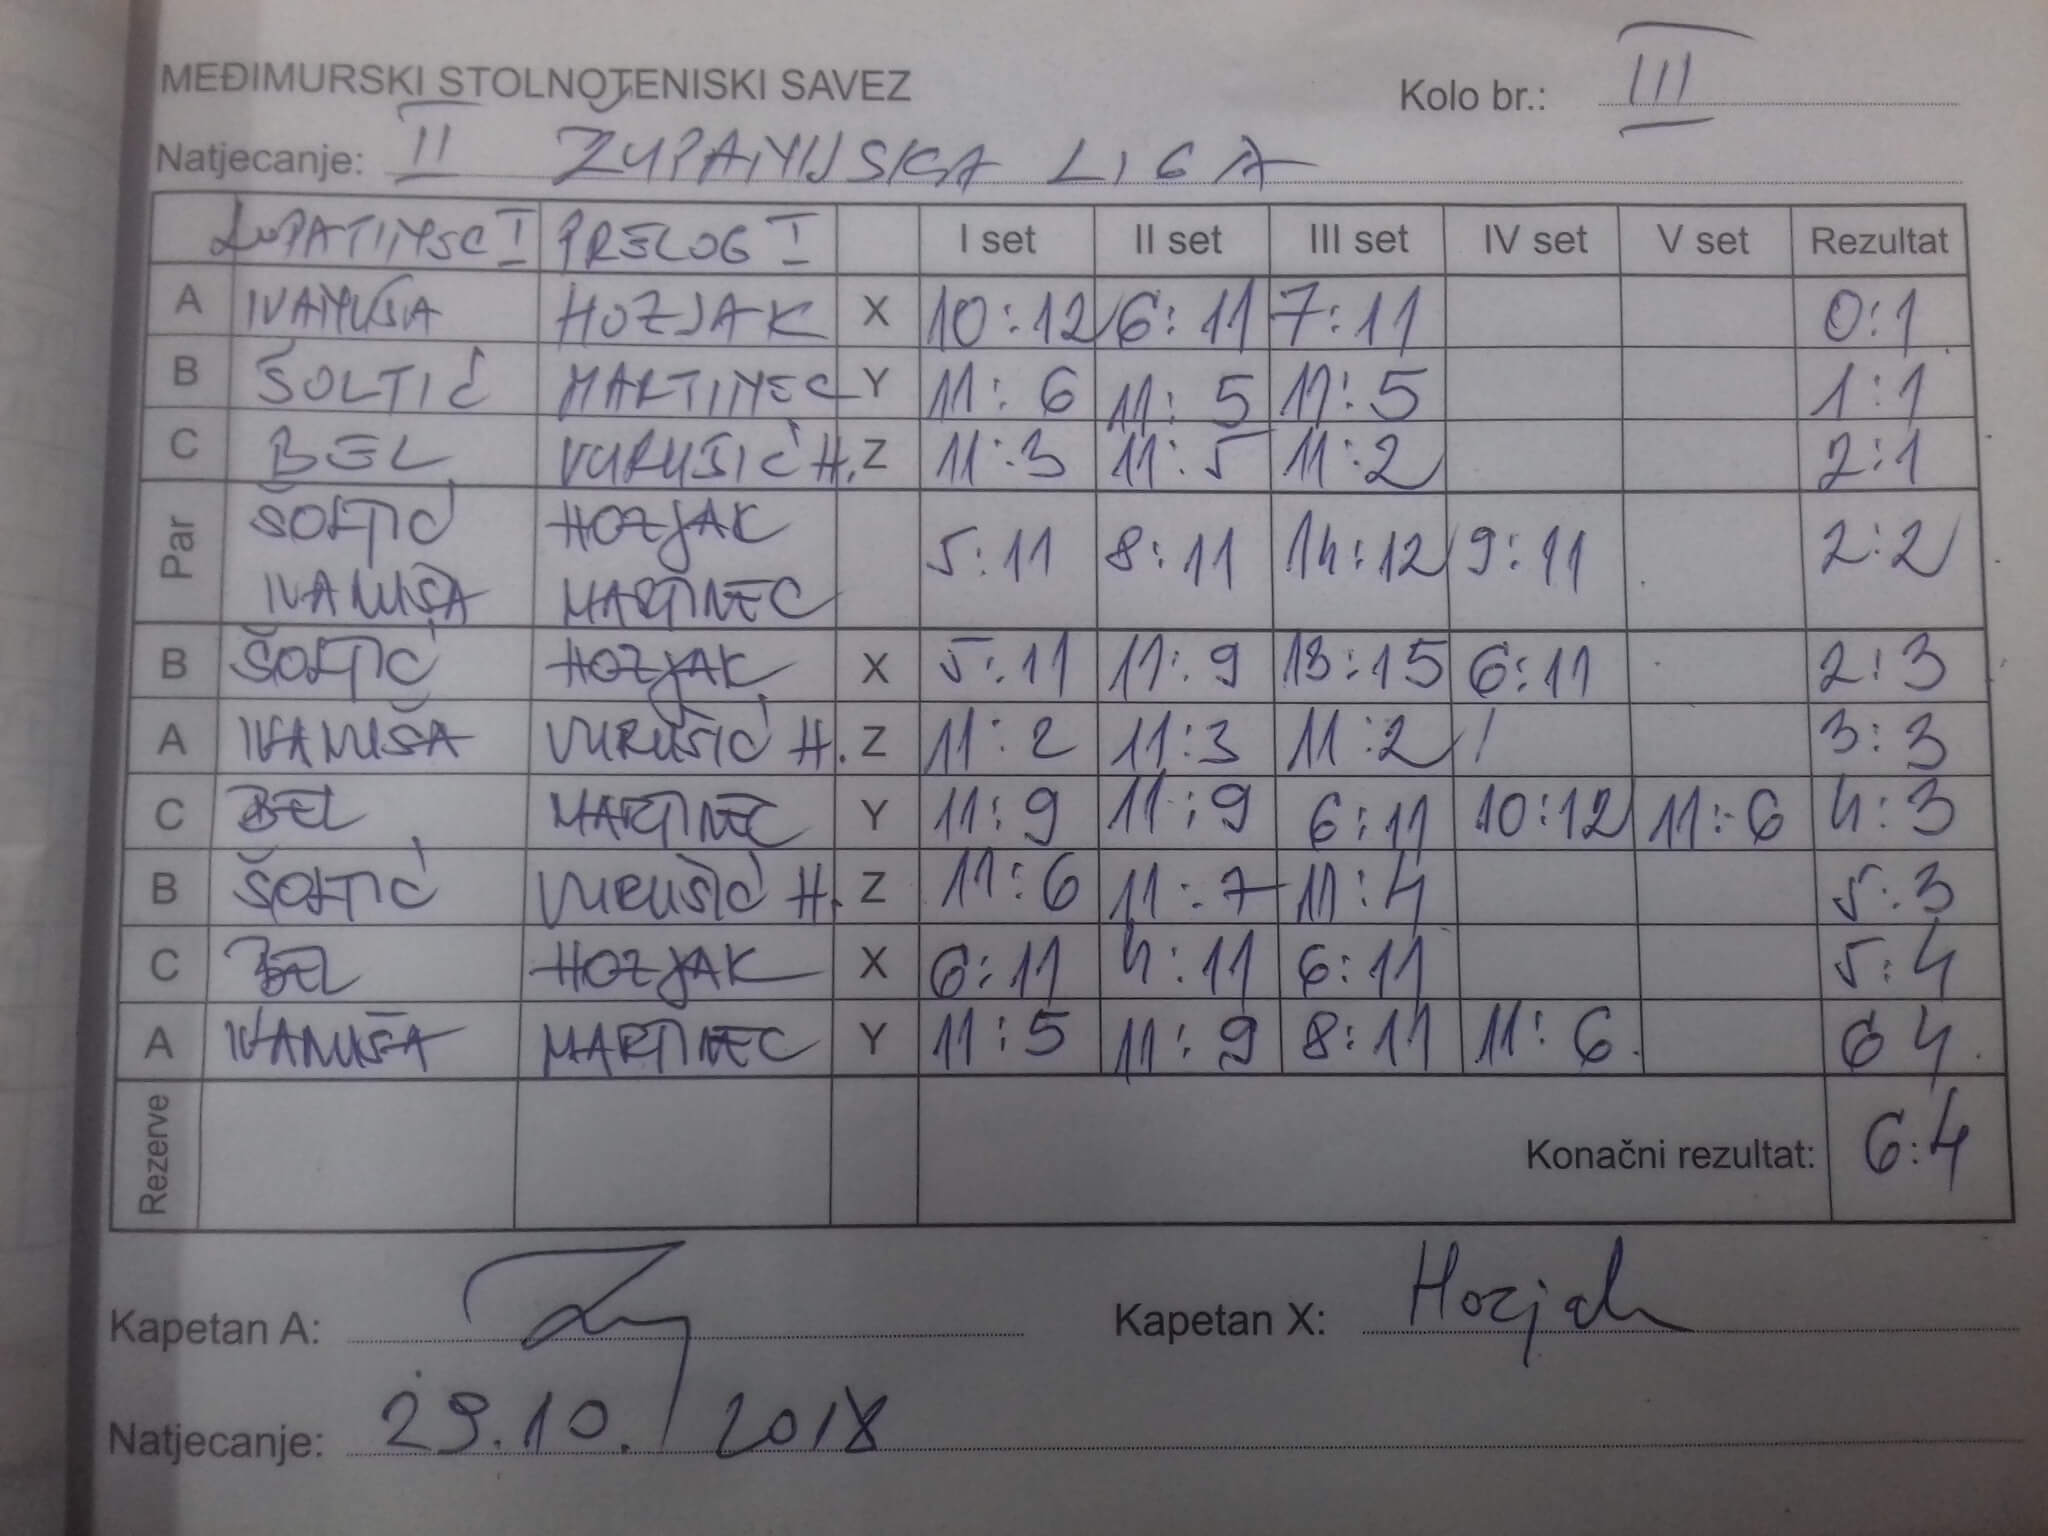 MEĐIMURSKI STOLNOTENISKI SAVEZ Kolo br.: III
Natjecanje: II ŽUPANIJSKA LIGA
PRELOG I I set II set III set IV set V set Rezultat
A IVANUŠA HOZJAK X 10:12 6:11 7:11 0:1
B ŠOLTIĆ MARTINEC Y 11:6 11:5 11:5 1:1
C BEL VURUŠIĆ H. Z 11:3 11:5 11:2 2:1
Par ŠOLTIĆ HOZJAK 5:11 8:11 14:12 9:11 2:2
IVANUŠA MARTINEC
B ŠOLTIĆ HOZJAK X 5:11 11:9 13:15 6:11 2:3
A IVANUŠA VURUŠIĆ H. Z 11:2 11:3 11:2 / 3:3
C BEL MARTINEC Y 11:9 11:9 6:11 10:12 11:6 4:3
B ŠOLTIĆ VURUŠIĆ H. Z 11:6 11:7 11:4 5:3
C BEL HOZJAK X 6:11 4:11 6:11 5:4
A IVANUŠA MARTINEC Y 11:5 11:9 8:11 11:6 6 4
Rezerve Konačni rezultat: 6:4
Kapetan A: Kapetan X: Hozjak
Natjecanje: 29.10. 2018